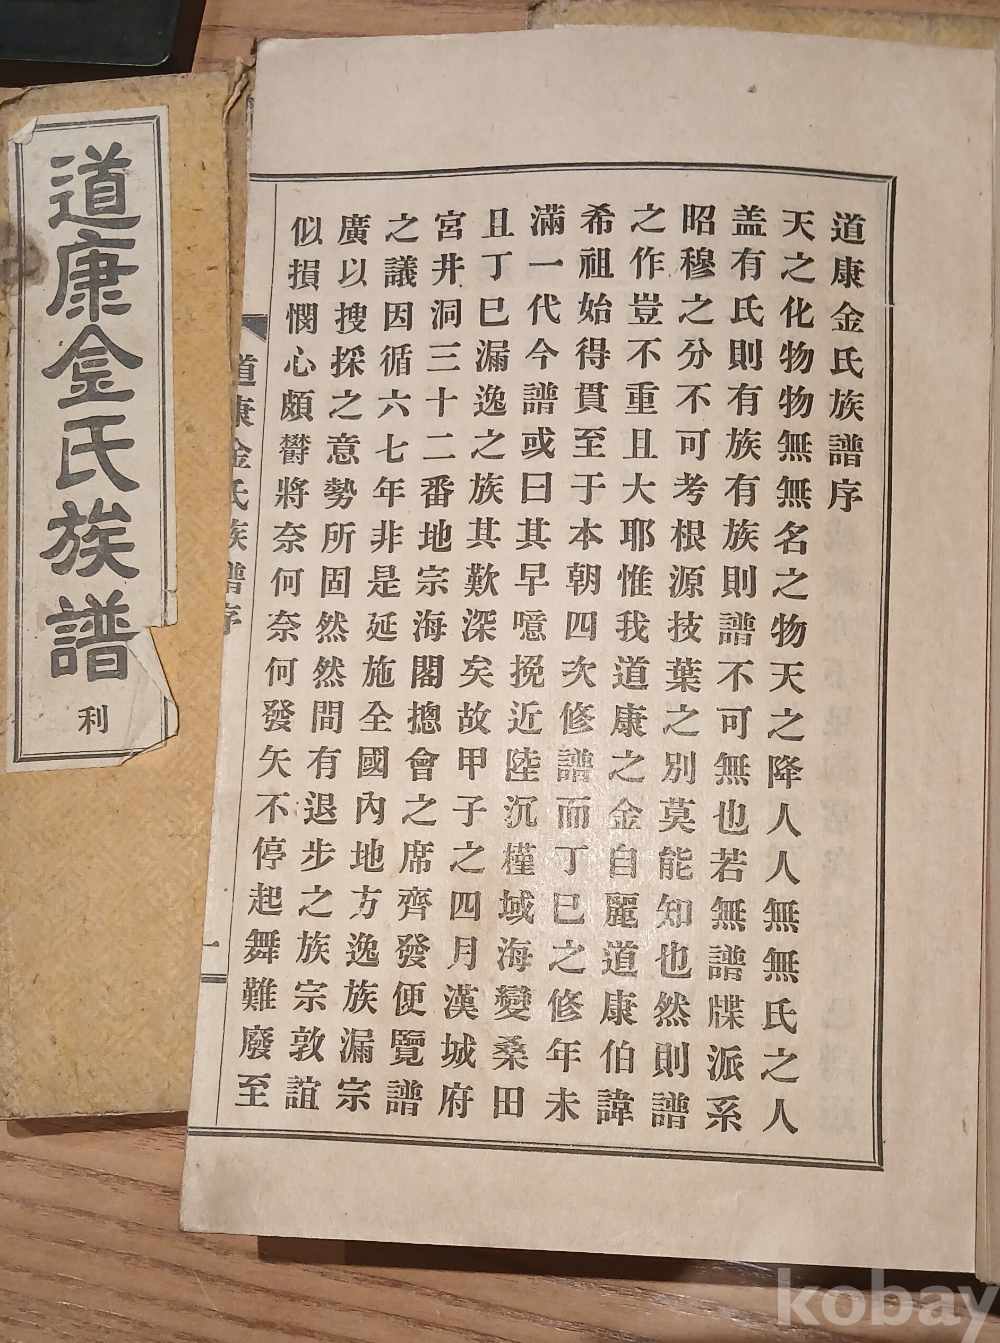 道康金氏族譜
利
道康金氏族譜序
天之化物物無無名之物天之降人人無無氏之人
盖有氏則有族有族則譜不可無也若無譜牒派系
昭穆之分不可考根源技葉之別莫能知也然則譜
之作豈不重且大耶惟我道康之金自麗道康伯諱
希祖始得貫至于本朝四次修譜而丁巳之修年未
滿一代今譜或曰其早噫挽近陸沉槿域海變桑田
且丁巳漏逸之族其歎深矣故甲子之四月漢城府
宮井洞三十二番地宗海閣摠會之席齊發便覽譜
之議因循六七年非是延施全國內地方逸族漏宗
廣以搜採之意勢所固然然間有退步之族宗敦誼
似損憫心頗欝將奈何奈何發矢不停起舞難廢至
道康金氏族譜序
一
kobay